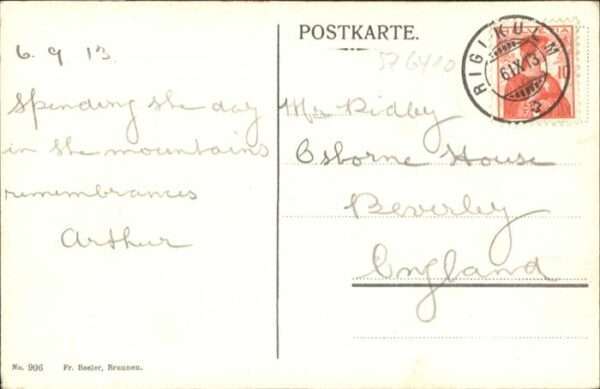 6. 9 13.
Spending the day
in the mountains
remembrances
Arthur
No. 906 Fr. Beeler, Brunnen.
POSTKARTE.
RIGI KULM
6 IX 13
2
10
Mrs Ridley
Osborne House
Beverley
England